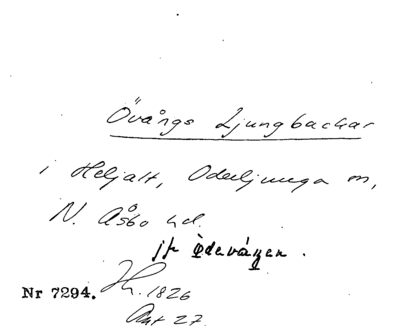 Övångs Ljungbackar
i Heljalt, Oderljunga sn,
N. Åsbo hd.
jfr Ödevången.
Nr 7294. Lh. 1826
Akt 27.